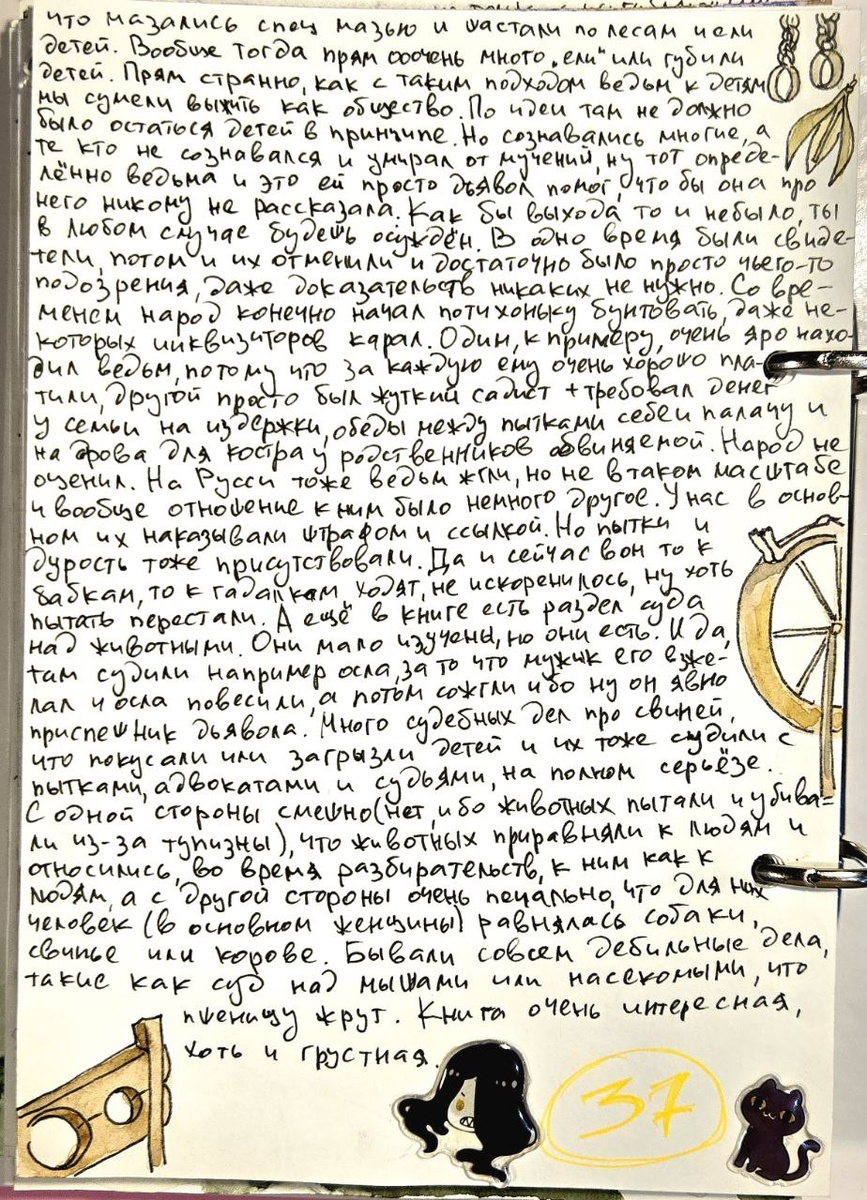 что мазались спец мазью и шастали по лесам и ели
детей. Вообще тогда прям ооочень много „ели“ или губили
детей. Прям странно, как с таким подходом ведьм к детям
мы сумели выжить как общество. По идеи там не должно
было остаться детей в принципе. Но сознавались многие, а
те кто не сознавался и умирал от мучений, ну тот опреде-
лённо ведьма и это ей просто дьявол помог, что бы она про
него никому не рассказала. Как бы выхода то и небыло, ты
в любом случае будешь осуждён. В одно время были свиде-
тели, потом и их отменили и достаточно было просто чьего-то
подозрения, даже доказательств никаких не нужно. Со вре-
менем народ конечно начал потихоньку бунтовать, даже не-
которых инквизиторов карал. Один, к примеру, очень яро нахо-
дил ведьм, потому что за каждую ему очень хорошо пла-
тили, другой просто был жуткий садист + требовал денег
у семьи на издержки, обеды между пытками себе и палачу и
на дрова для костра у родственников обвиняемой. Народ не
оценил. На Русси тоже ведьм жгли, но не в таком масштабе
и вообще отношение к ним было немного другое. У нас в основ-
ном их наказывали штрафом и ссылкой. Но пытки и
дурость тоже присутствовали. Да и сейчас вон то к
бабкам, то к гадалкам ходят, не искоренилось, ну хоть
пытать перестали. А ещё в книге есть раздел суда
над животными. Они мало изучены, но они есть. И да,
там судили например осла, за то что мужик его возже-
лал и осла повесили, а потом сожгли ибо ну он явно
приспешник дьявола. Много судебных дел про свиней,
что покусали или загрызли детей и их тоже судили с
пытками, адвокатами и судьями, на полном серьёзе.
С одной стороны смешно (нет, ибо животных пытали и убива-
ли из-за тупизны), что животных приравняли к людям и
относились, во время разбирательств, к ним как к
людям, а с другой стороны очень печально, что для них
человек (в основном женщины) равнялась собаки,
свинье или корове. Бывали совсем дебильные дела,
такие как суд над мышами или насекомыми, что
пшеницу жрут. Книга очень интересная,
хоть и грустная.
37